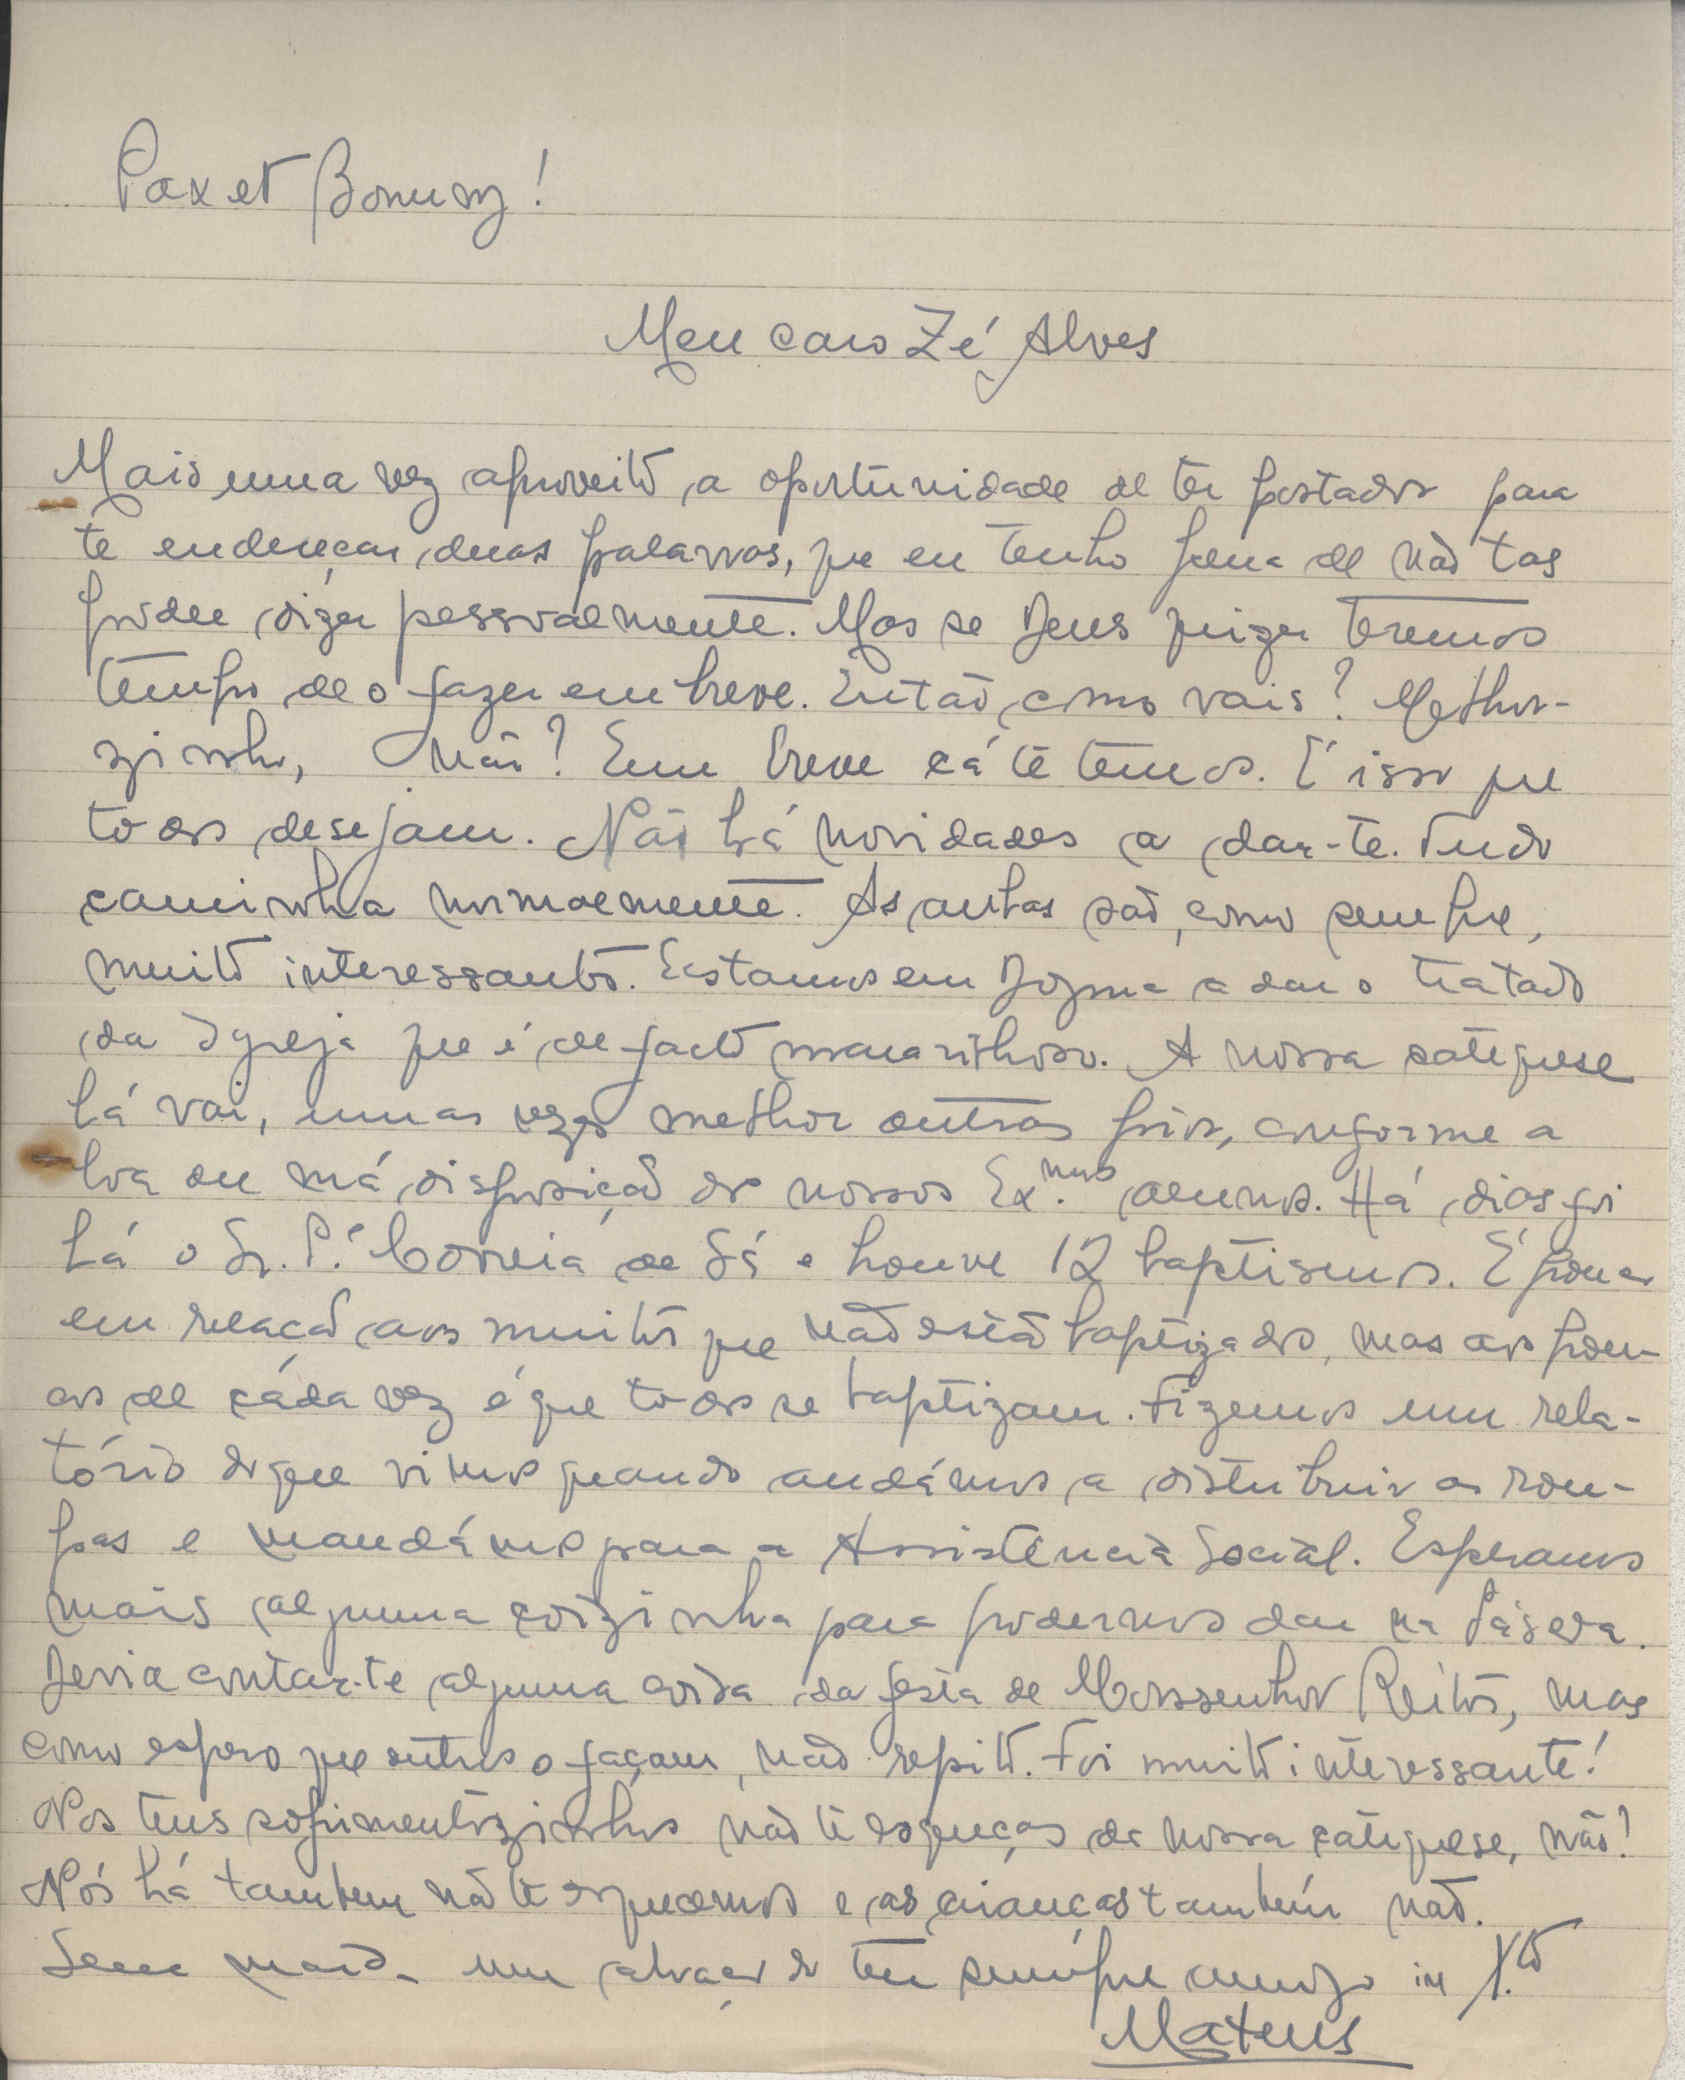 Pax et Bonum!
Meu caro Zé Alves
Mais uma vez aproveito a oportunidade de ter portador para
te endereçar duas palavras, que eu tenho pena de não tas
poder dizer pessoalmente. Mas se Deus quizer teremos
tempo de o fazer em breve. Então, como vais? Melhor-
zinho, não? Em breve cá te temos. É isso que
todos desejam. Não há novidades a dar-te. Tudo
caminha normalmente. As aulas são, como sempre,
muito interessantes. Estamos em Dogma a dar o tratado
da Igreja que é de facto maravilhoso. A nossa catequese
lá vai, umas vezes melhor outras pior, conforme a
boa ou má disposição dos nossos Ex.mos alunos. Há dias foi
lá o Sr. P.e Correia de Sá e houve 12 baptismos. É pouco
em relação aos muitos que não estão baptizados, mas aos pou-
cos de cada vez é que todos se baptizam. Fizemos um rela-
tório do que vimos quando andámos a distribuir as rou-
pas e mandámos para a Assistência Social. Esperamos
mais alguma coizinha para podermos dar na Páscoa.
Devia contar-te alguma coisa da festa de Monsenhor Reitor, mas
como espero que outros o façam, não repito. Foi muito interessante!
Nos teus sofrimentozinhos não te esqueças da nossa catequese, não!
Nós lá tambem não te esquecemos e as crianças também não.
Sem mais um abraço do teu sempre amigo in X.to
Mateus